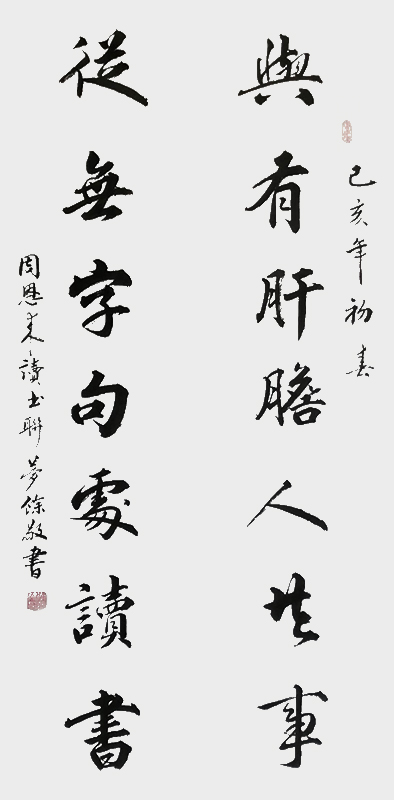 己亥年初春
與有肝膽人共事
從無字句處讀書
周恩来讀书聯夢餘敬書